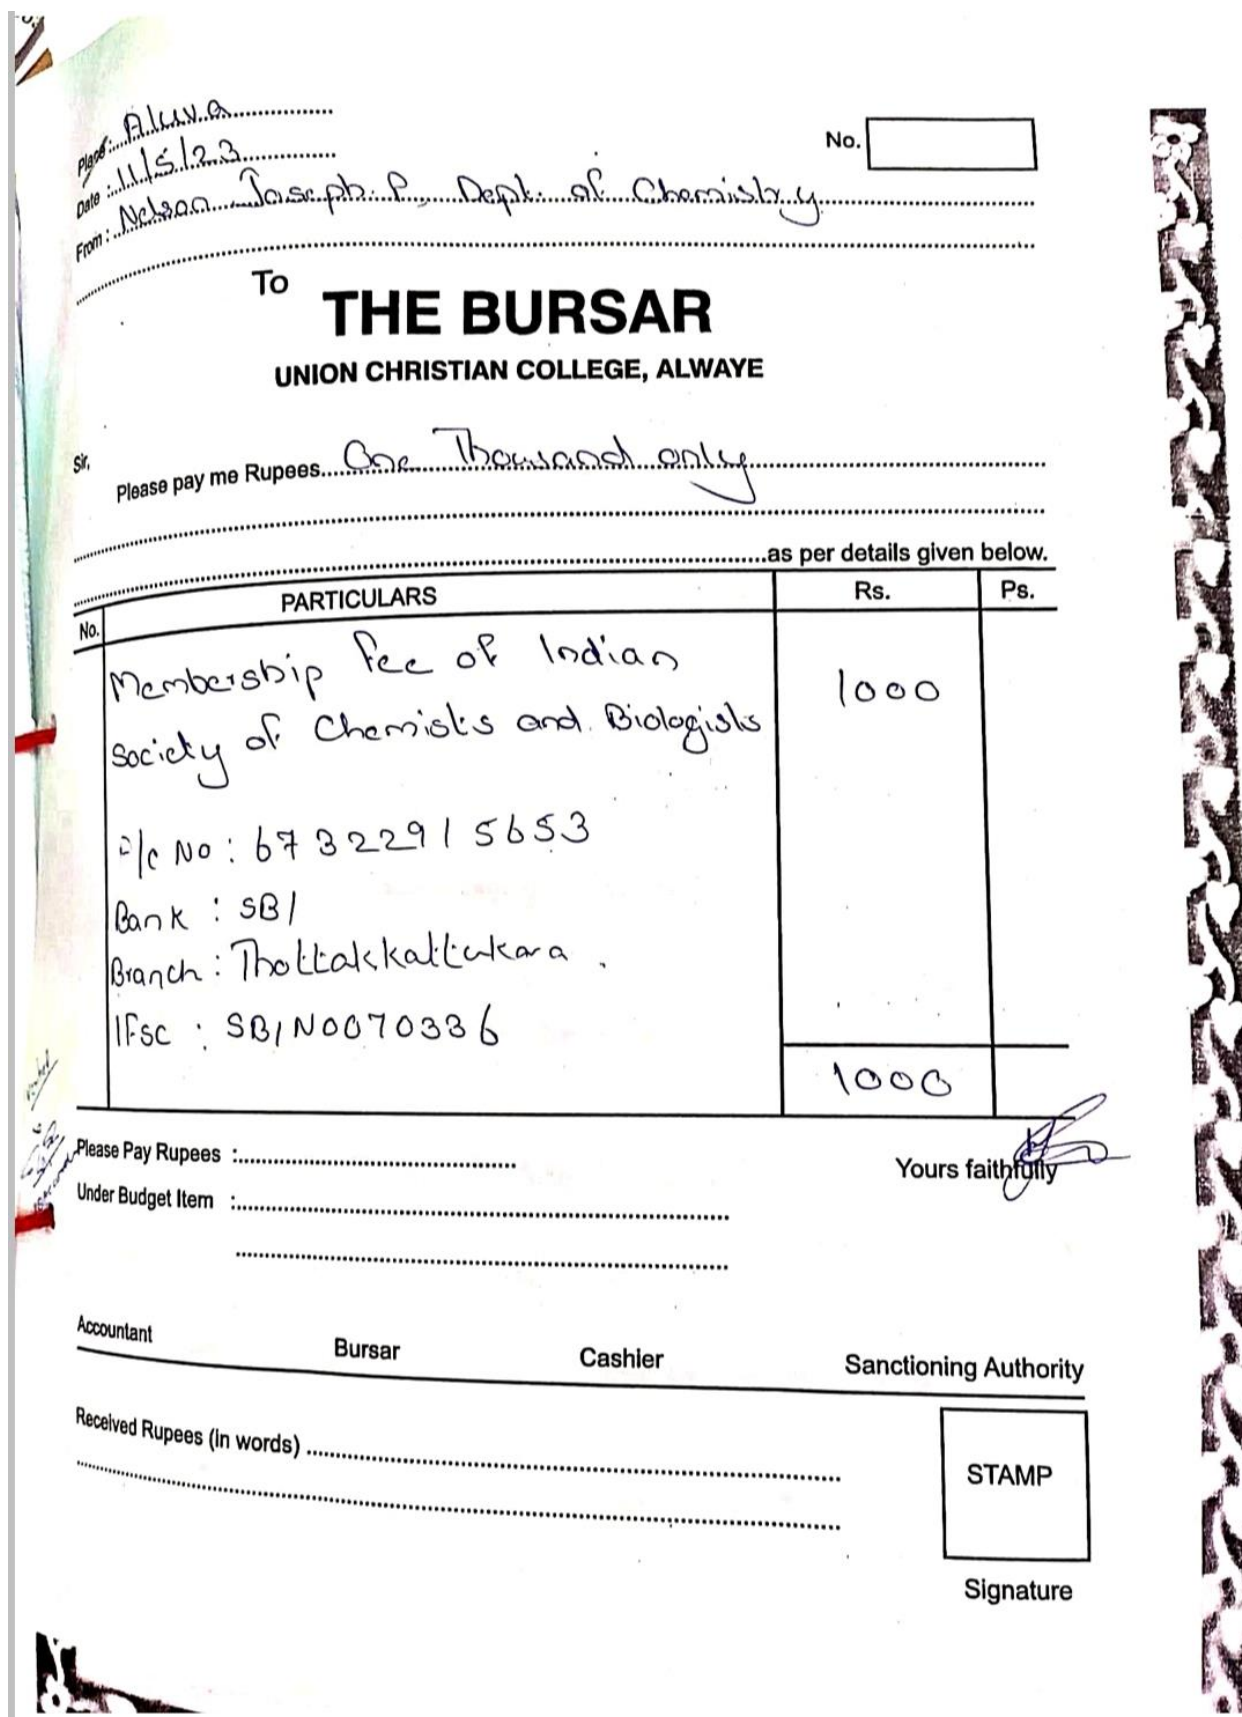 Place: Aluva
No.
Date : 11/5/23
From : Nelson Joseph P, Dept. of Chemistry
To
THE BURSAR
UNION CHRISTIAN COLLEGE, ALWAYE
Sir,
Please pay me Rupees One Thousand only
as per details given below.
No. PARTICULARS Rs. Ps.
Membership fee of Indian 1000
Society of Chemists and Biologists
A/c No : 67322915653
Bank : SBI
Branch : Thottakkattukara
IFSC : SBIN0070336
1000
Please Pay Rupees :
Yours faithfully
Under Budget Item :
Accountant Bursar Cashier Sanctioning Authority
Received Rupees (in words)
STAMP
Signature